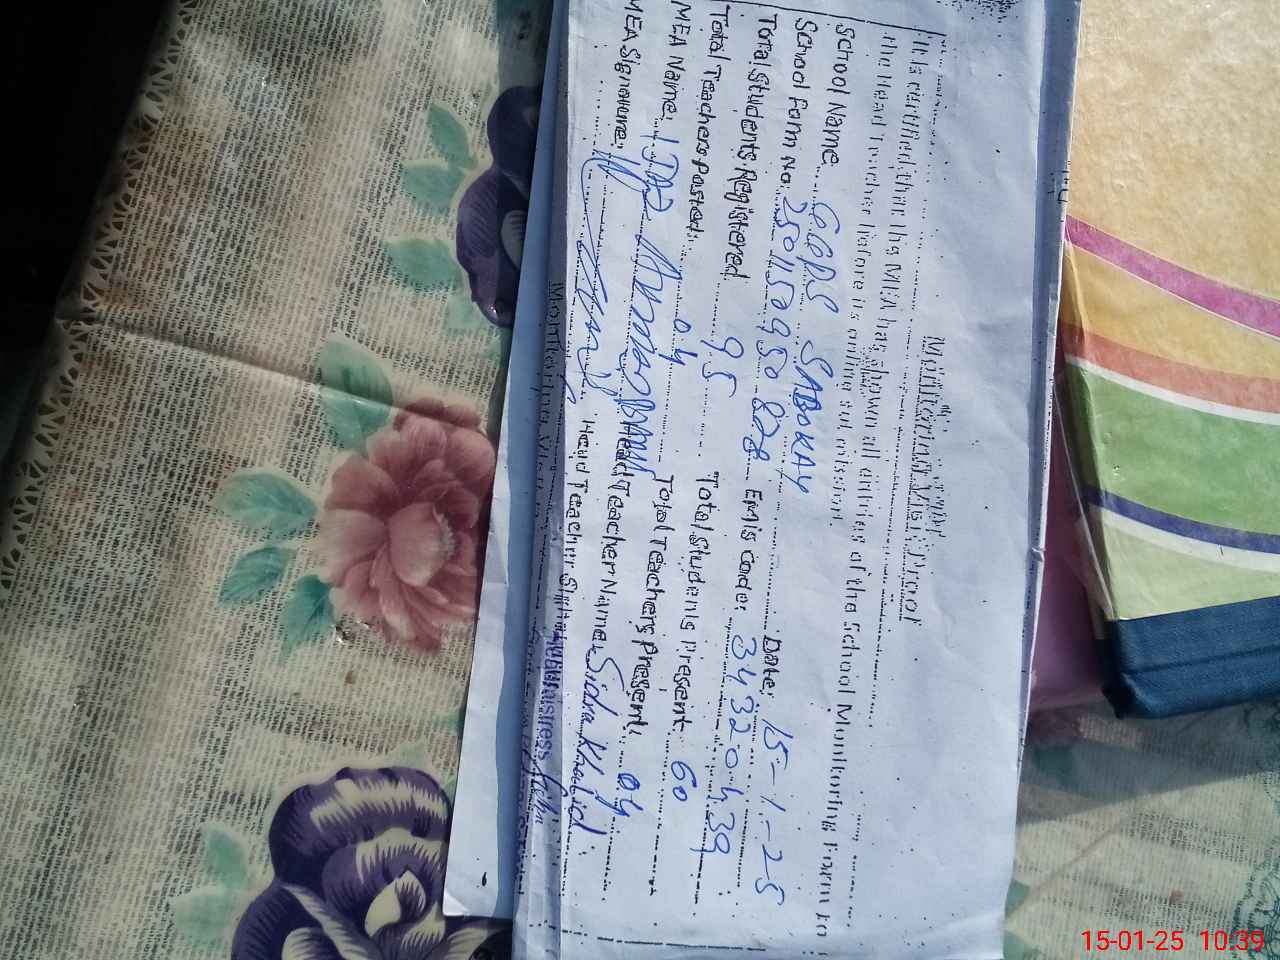 Monitoring Visit Proof
It is certified that the MEA has shown all entries of the School Monitoring Form to
the Head Teacher before its online submission
School Name GGPS SABOKAY Date: 15-1-25
School Form No. Emis Code: 34320439
Total Students Registered 95 Total Students Present 60
Total Teachers Posted: 04 Total Teachers Present: 04
MEA Name: Head Teacher Name: Sidra Khalid
MEA Signature: Head Teacher
Headmistress
15-01-25 10:39